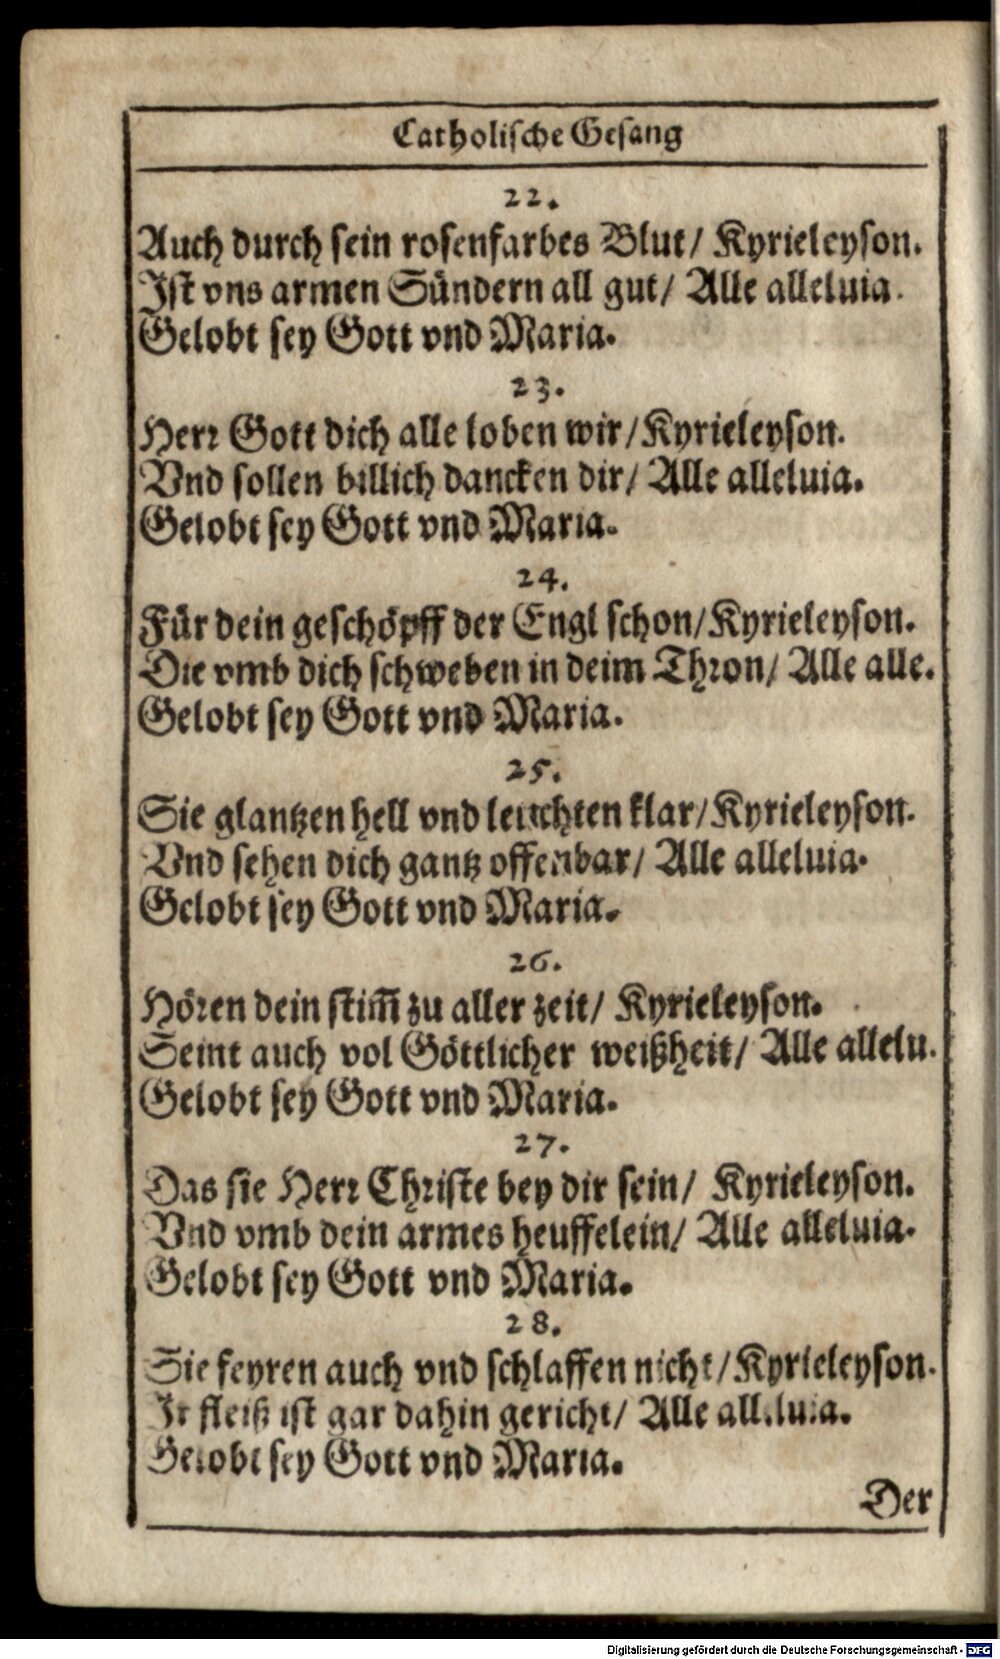 Catholische Gesang
22.
Auch durch sein rosenfarbes Blut/ Kyrieleyson.
Ist vns armen Sündern all gut/ Alle alleluia.
Gelobt sey Gott vnd Maria.
23.
Herr Gott dich alle loben wir/ Kyrieleyson.
Vnd sollen billich dancken dir/ Alle alleluia.
Gelobt sey Gott vnd Maria.
24.
Für dein geschöpff der Engl schon/ Kyrieleyson.
Die vmb dich schweben in deim Thron/ Alle alle.
Gelobt sey Gott vnd Maria.
25.
Sie glantzen hell vnd leuchten klar/ Kyrieleyson.
Vnd sehen dich gantz offenbar/ Alle alleluia.
Gelobt sey Gott vnd Maria.
26.
Hören dein stim̃ zu aller zeit/ Kyrieleyson.
Seint auch vol Göttlicher weißheit/ Alle allelu.
Gelobt sey Gott vnd Maria.
27.
Das sie Herr Christe bey dir sein/ Kyrieleyson.
Vnd vmb dein armes heuffelein/ Alle alleluia.
Gelobt sey Gott vnd Maria.
28.
Sie feyren auch vnd schlaffen nicht/ Kyrieleyson.
Ir fleiß ist gar dahin gericht/ Alle alleluia.
Gelobt sey Gott vnd Maria.
Der
Digitalisierung gefördert durch die Deutsche Forschungsgemeinschaft - DFG